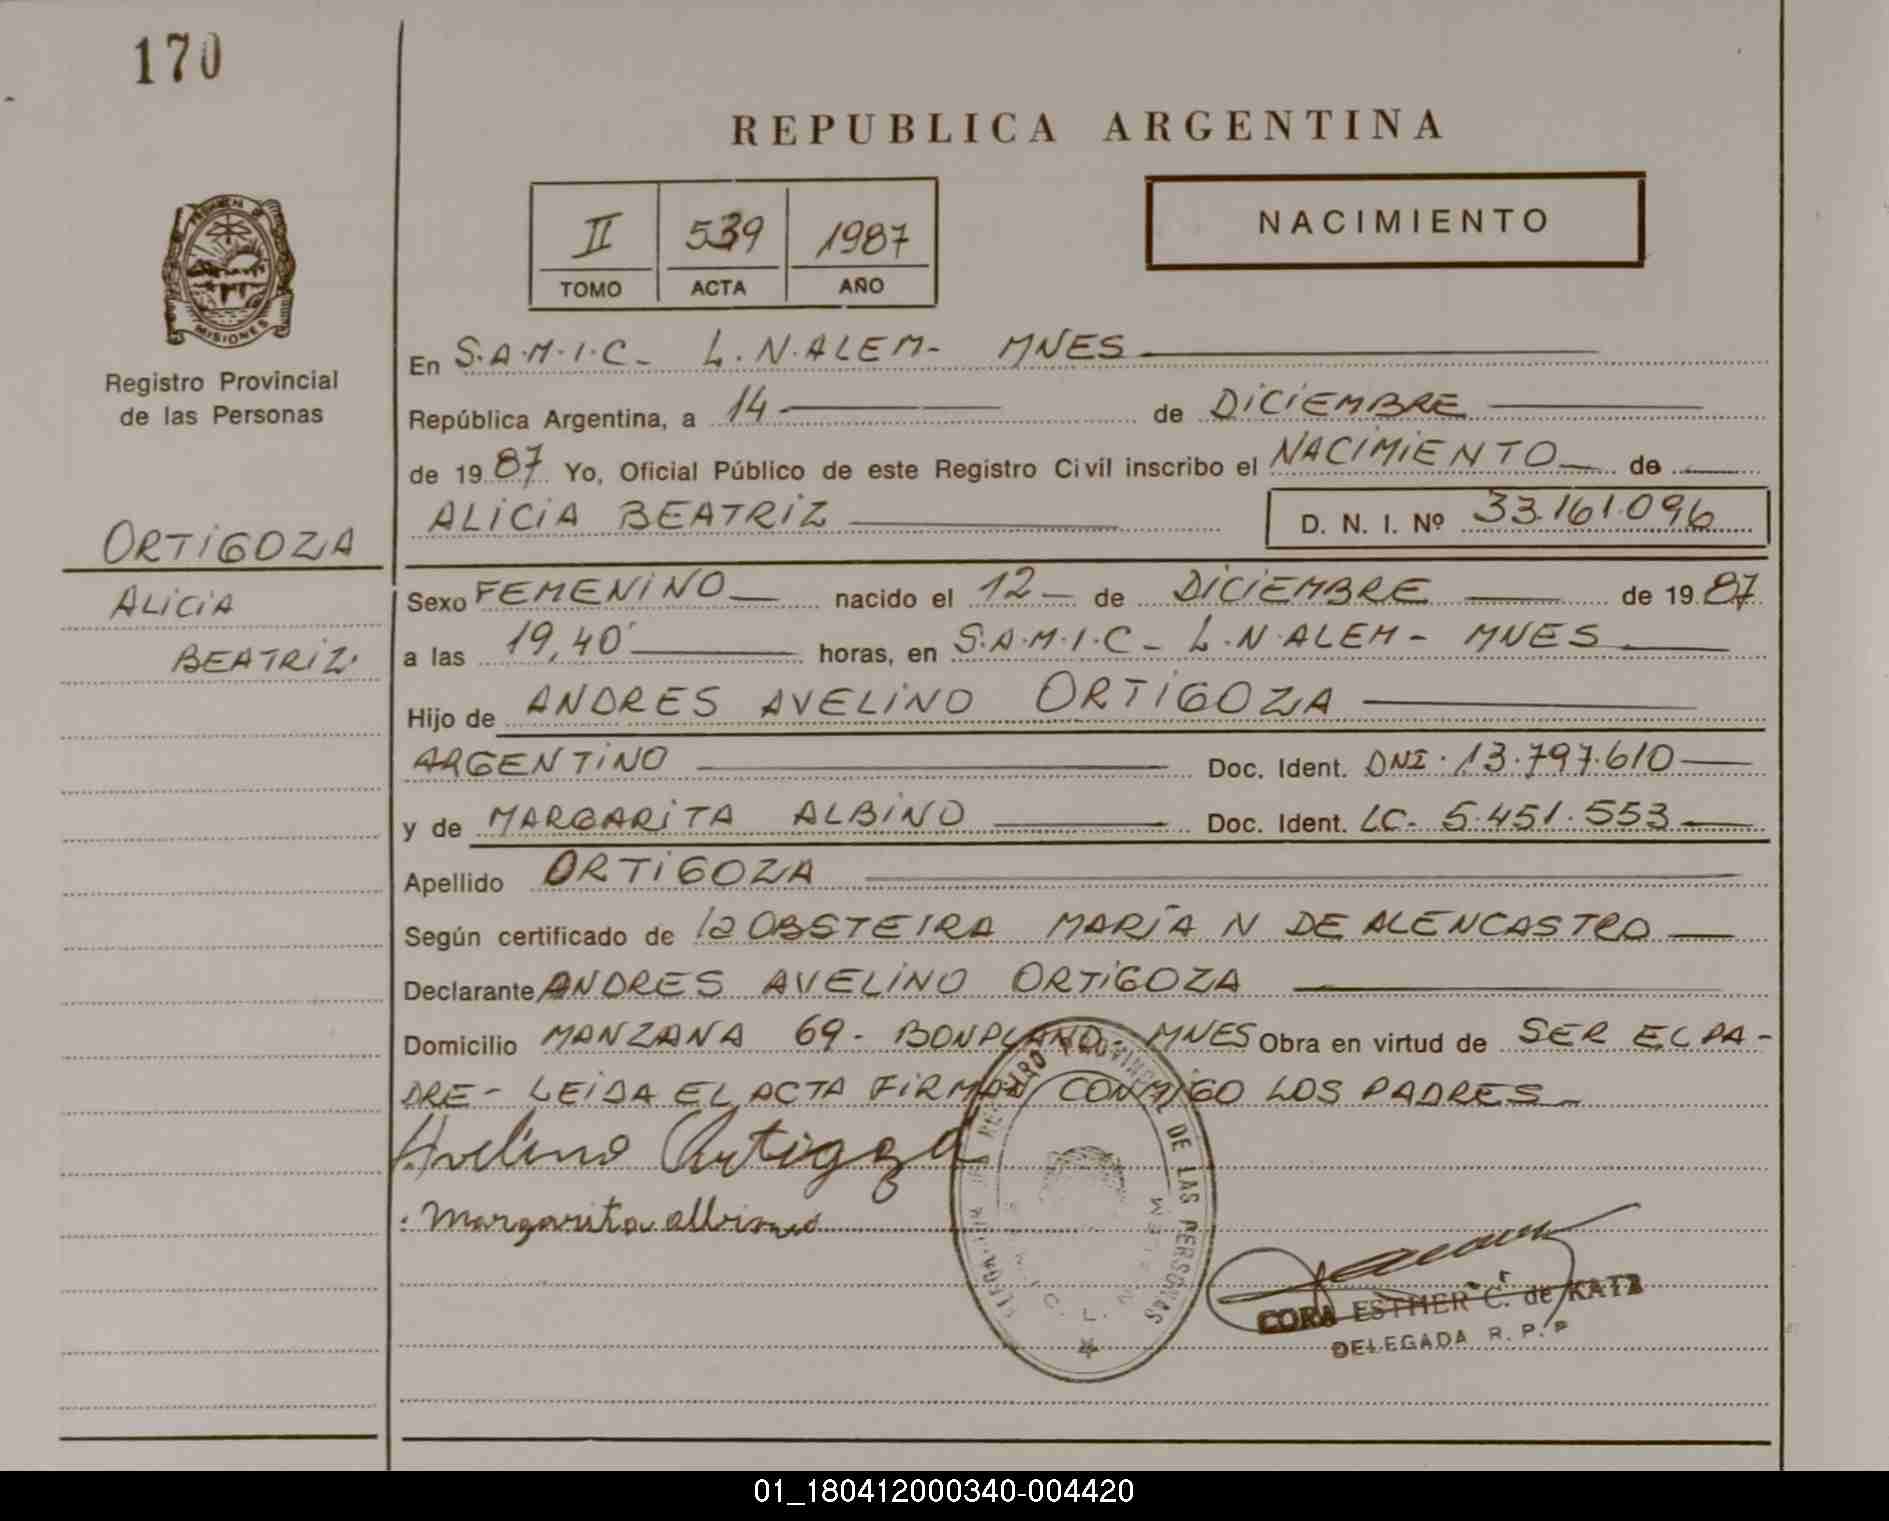 170
REPUBLICA ARGENTINA
II 539 1987
TOMO ACTA AÑO
NACIMIENTO
PROVINCIA DE
MISIONES
Registro Provincial
de las Personas
ORTIGOZA
ALICIA
BEATRIZ
En S.A.M.I.C- L.N.ALEM- MNES
República Argentina, a 14 de DICIEMBRE
de 1987 Yo, Oficial Público de este Registro Civil inscribo el NACIMIENTO de
ALICIA BEATRIZ D. N. I. Nº 33.161.096
Sexo FEMENINO nacido el 12 de DICIEMBRE de 1987
a las 19,40 horas, en S.A.M.I.C- L.N.ALEM- MNES
Hijo de ANDRES AVELINO ORTIGOZA
ARGENTINO Doc. Ident. DNI. 13.797.610
y de MARGARITA ALBINO Doc. Ident. LC- 5.451.553
Apellido ORTIGOZA
Según certificado de la OBSTEIRA MARÍA N DE ALENCASTRO
Declarante ANDRES AVELINO ORTIGOZA
Domicilio MANZANA 69- BONPLAND- MNES Obra en virtud de SER EL PA-
DRE- LEIDA EL ACTA FIRMAN CONMIGO LOS PADRES-
Avelino Ortigoza
Margarita albino
DE LAS PERSONAS
CORA ESTHER C. de KATZ
DELEGADA R. P. P
01_180412000340-004420